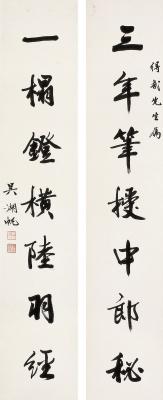 得先生屬
三年筆授中郎秘
一榻鐙橫陸羽經
吳湖帆